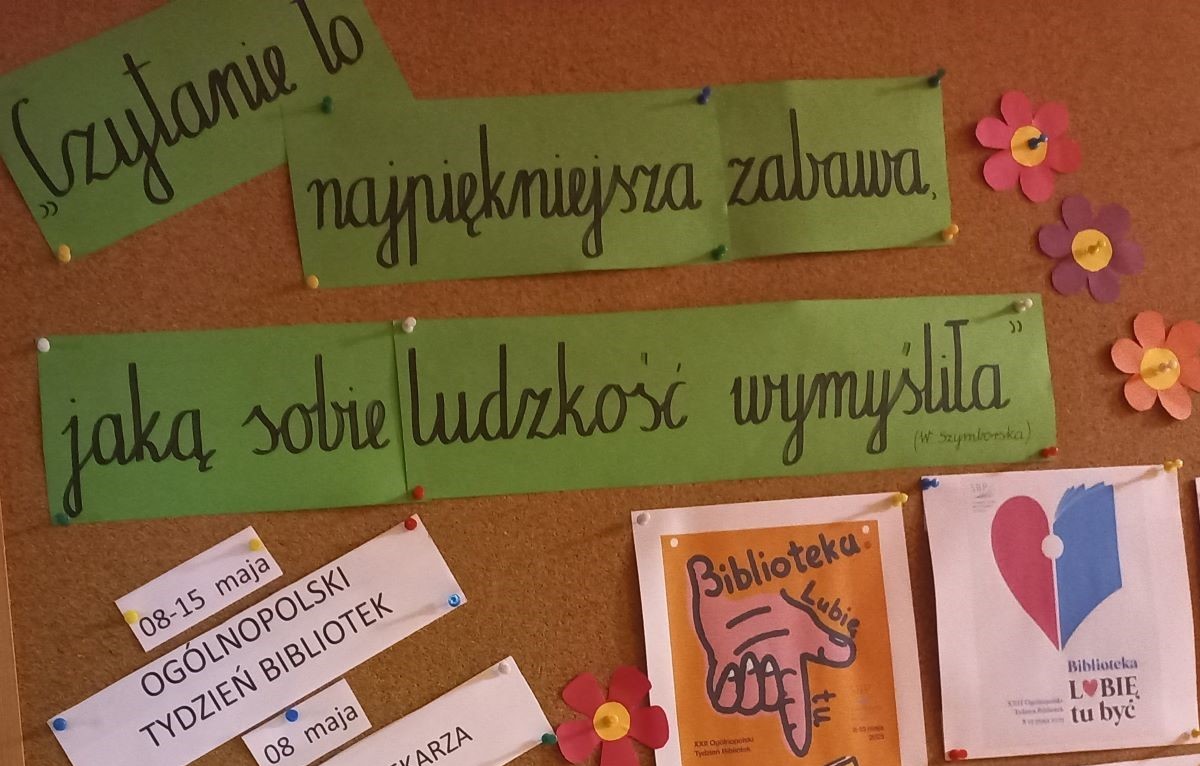 „Czytanie to
najpiękniejsza zabawa,
jaką sobie ludzkość wymyśliła”
(W. Szymborska)
08-15 maja
OGÓLNOPOLSKI
TYDZIEŃ BIBLIOTEK
08 maja
KARZA
Biblioteka
Lubię
tu
XXII Ogólnopolski
Tydzień Bibliotek
8-15 maja
SBP
Biblioteka
LUBIĘ
tu być
XXII Ogólnopolski
Tydzień Bibliotek